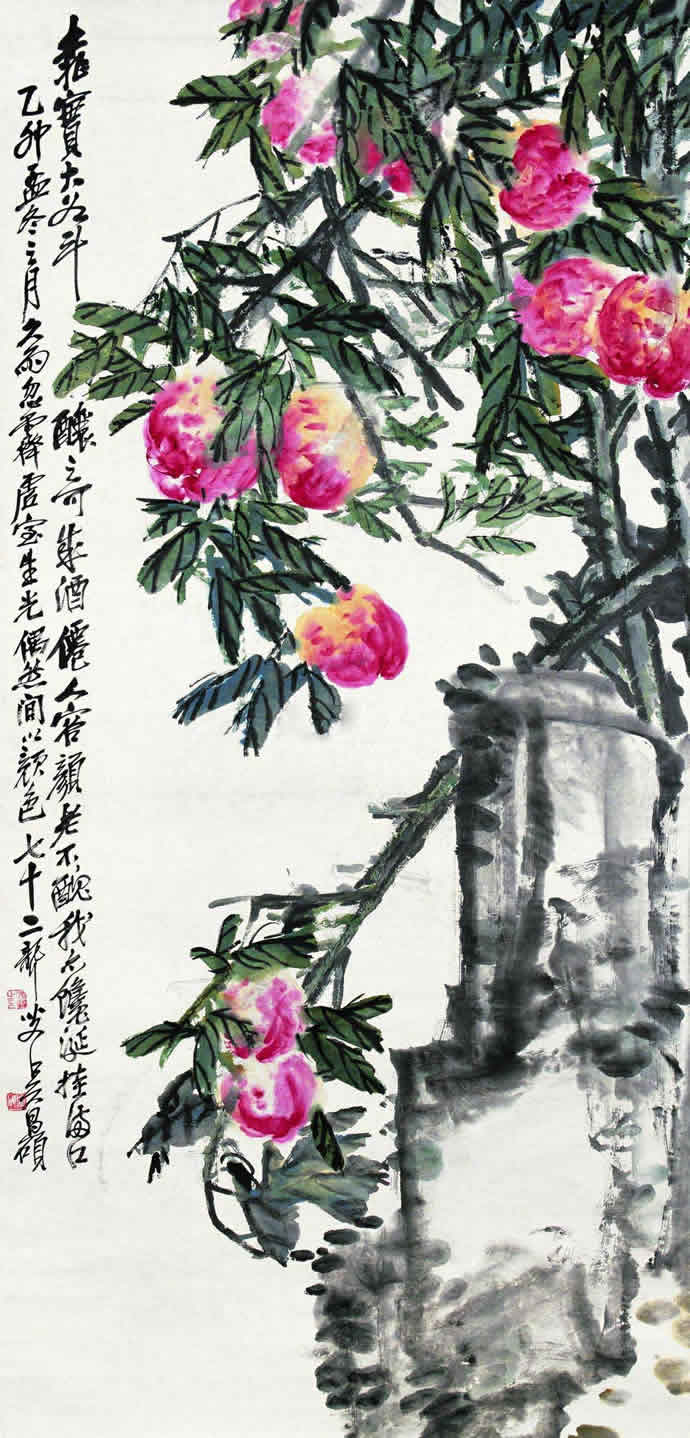 實大若斗釀之可成酒僊人容顏老不醜我亦饞涎挂滿口
乙卯孟冬之月久雨忽霽虛室生光偶然間以顏色七十二聾叟吳昌碩